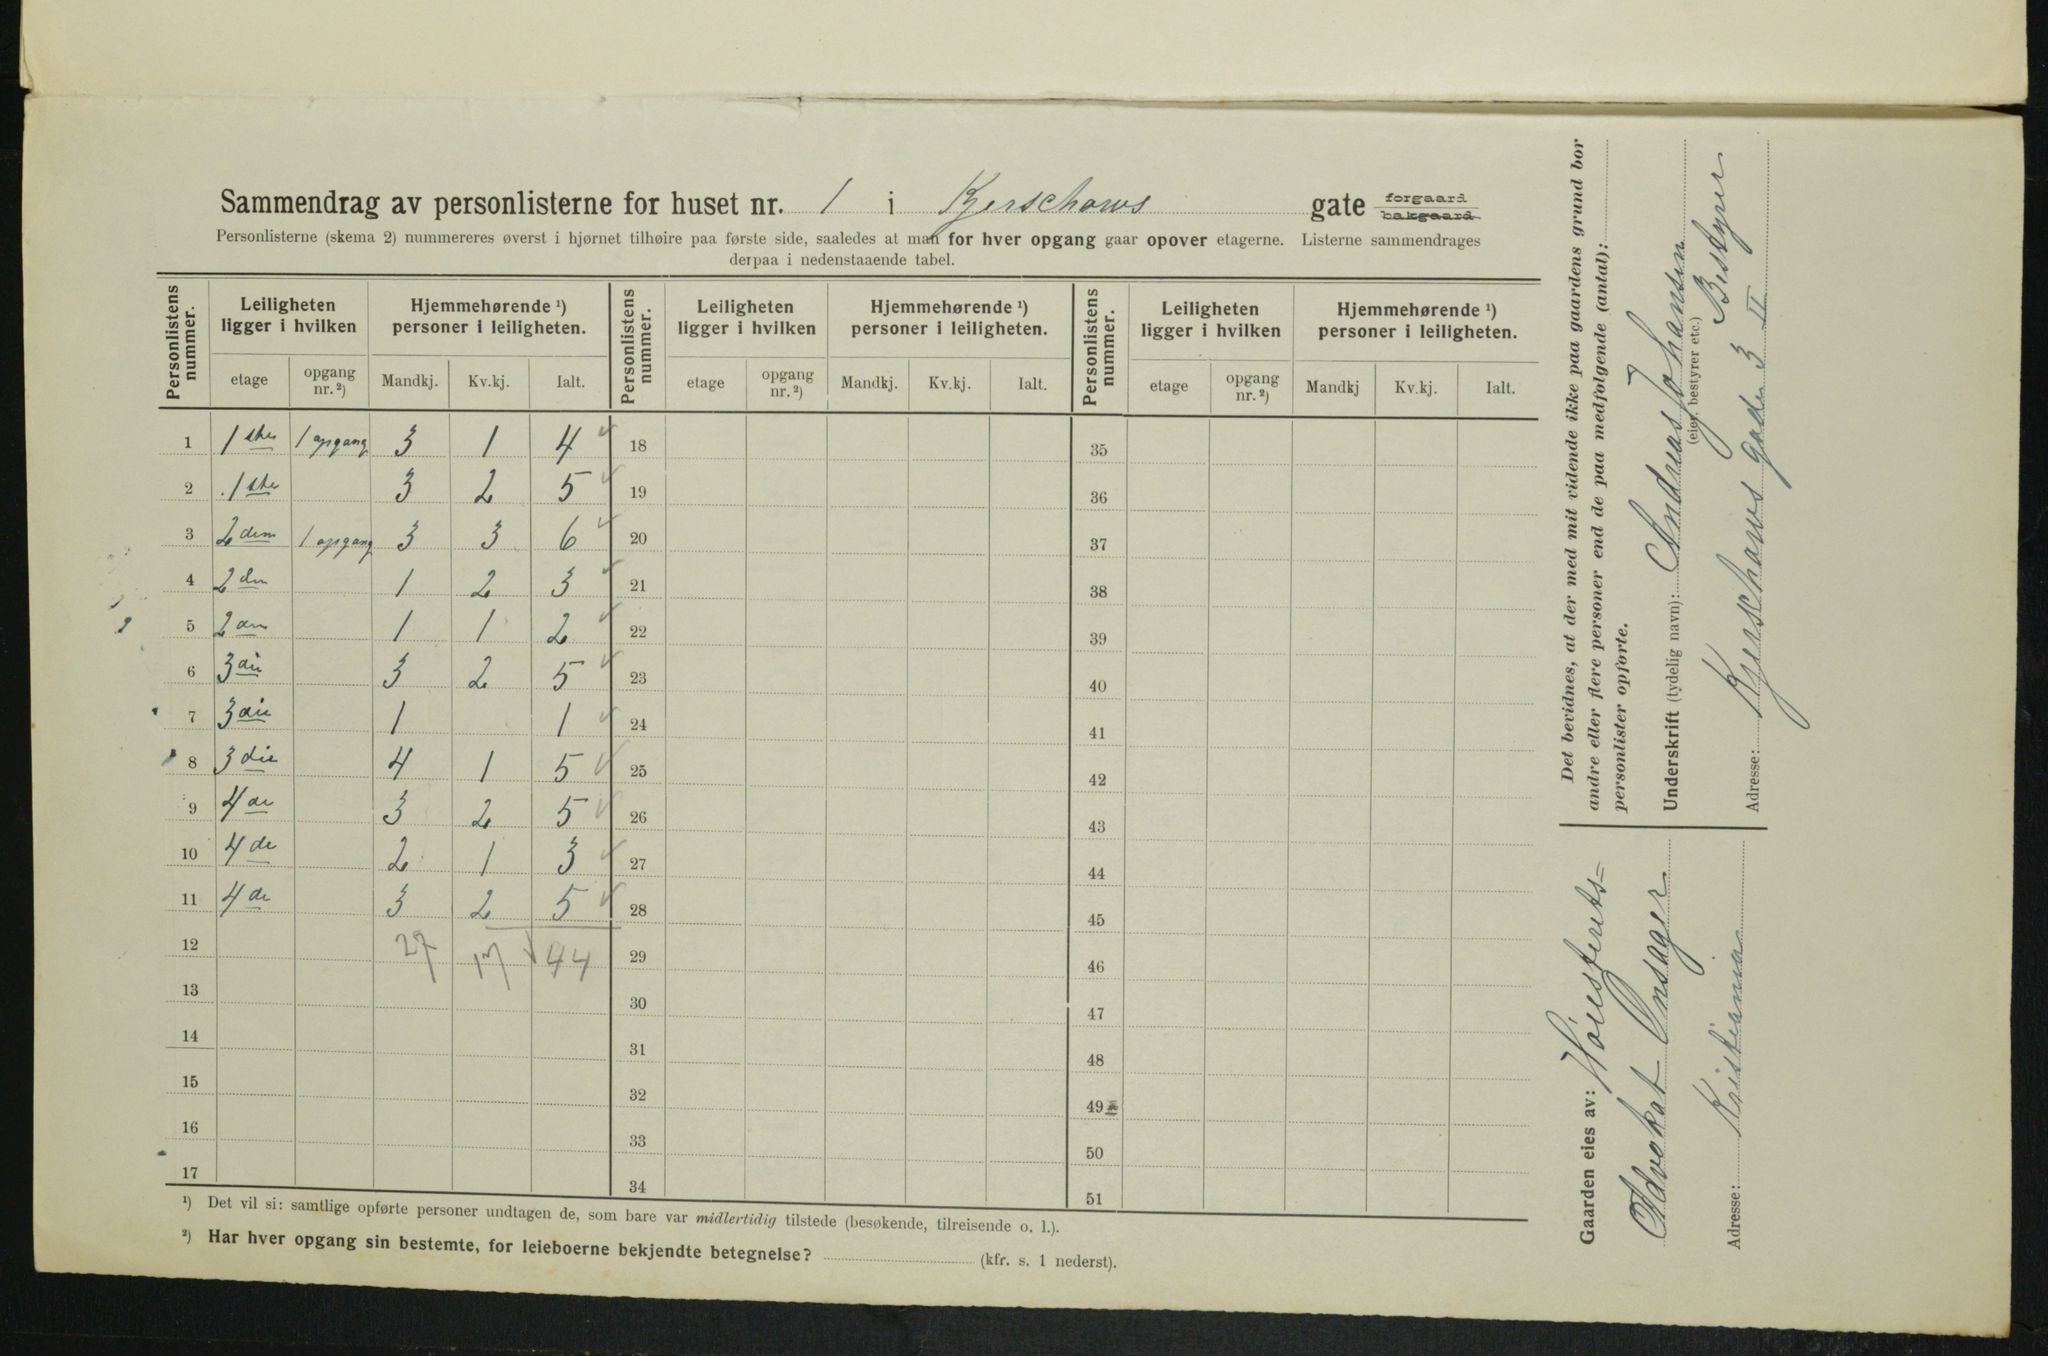 Sammendrag av personlisterne for huset nr. 1 i Kjerschows gate forgaard
bakgaard
Personlisterne (skema 2) nummereres øverst i hjørnet tilhøire paa første side, saaledes at man for hver opgang gaar opover etagerne. Listerne sammendrages
derpaa i nedenstaaende tabel.
Personlistens nummer. Leiligheten ligger i hvilken Hjemmehørende ¹) personer i leiligheten. Personlistens nummer. Leiligheten ligger i hvilken Hjemmehørende ¹) personer i leiligheten. Personlistens nummer. Leiligheten ligger i hvilken Hjemmehørende ¹) personer i leiligheten.
etage opgang nr. ²) Mandkj. Kv.kj. Ialt. etage opgang nr. ²) Mandkj. Kv.kj. Ialt. etage opgang nr. ²) Mandkj Kv.kj. Ialt.
1 1ste 1 opgang 3 1 4 ✓ 18 35
2 1ste 3 2 5 ✓ 19 36
3 2den 1 opgang 3 3 6 ✓ 20 37
4 2den 1 2 3 ✓ 21 38
5 2den 1 1 2 ✓ 22 39
6 3die 3 2 5 ✓ 23 40
7 3die 1 1 ✓ 24 41
8 3die 4 1 5 ✓ 25 42
9 4de 3 2 5 ✓ 26 43
10 4de 2 1 3 ✓ 27 44
11 4de 3 2 5 ✓ 28 45
12 27 17 44 29 46
13 30 47
14 31 48
15 32 49
16 33 50
17 34 51
¹) Det vil si: samtlige opførte personer undtagen de, som bare var midlertidig tilstede (besøkende, tilreisende o. l.).
²) Har hver opgang sin bestemte, for leieboerne bekjendte betegnelse? (kfr. s. 1 nederst).
Det bevidnes, at der med mit vidende ikke paa gaardens grund bor
andre eller flere personer end de paa medfølgende (antal):
personlister opførte.
Underskrift (tydelig navn): Andreas Johansen
(eier, bestyrer etc.) Bestyrer
Adresse: Kjerschows gade 3 II
Gaarden eies av: Høiesterets=
Advokat Onsager
Adresse: Kristiania